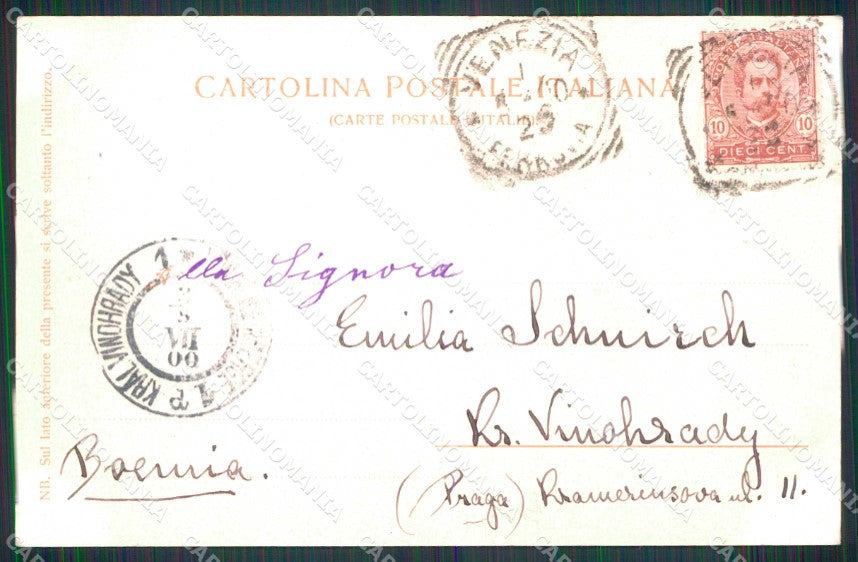 CARTOLINA POSTALE ITALIANA
(CARTE POSTALE D'ITALIE)
VENEZIA
FERROVIA
10 10
DIECI CENT.
NB. Sul lato anteriore della presente si scrive soltanto l'indirizzo.
KRÁL VINOHRADY 1
VII
00
Alla Signora
Emilia Schnirch
Kr. Vinohrady
(Praga) Krameriusova ul. 11.
Boemia.
CARTOLINOMANIA